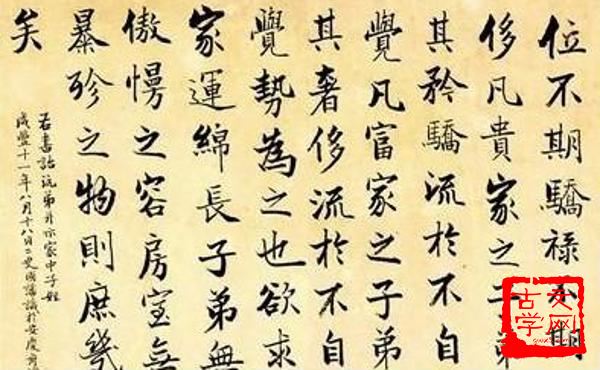 位不期驕祿不期
侈凡貴家之子弟
其矜驕流於不自
覺凡富家之子弟
其奢侈流於不自
覺勢為之也欲求
家運綿長子弟無
傲慢之容房室無
暴殄之物則庶幾
矣
右書詒沅弟并示家中子姪
咸豐十一年八月十八日二更國藩識於安慶
古文
学网